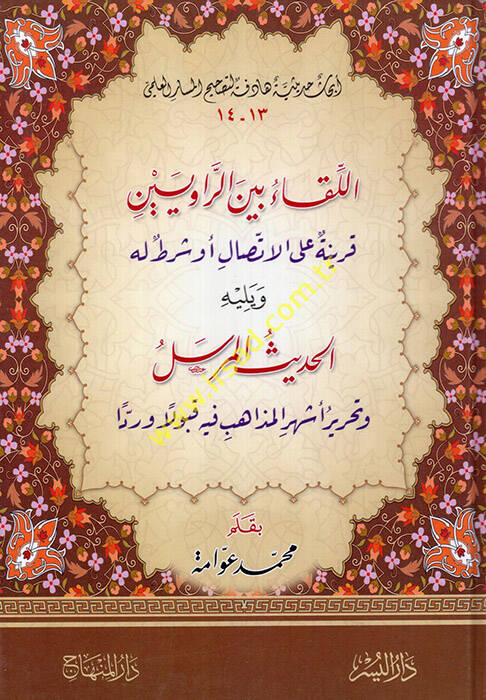 أبحاث حديثية هادفة لتصحيح المسار العلمي
١٣ - ١٤
اللِّقَاءُ بَيْنَ الرَّاوِيَيْنِ
قرينةٌ على الاتّصالِ أو شرطٌ له
وَيَلِيْهِ
الحديثُ المرسَلُ
وتحريرُ أشهرِ المذاهبِ فيه قبولًا وردًّا
بِقَلَم
محمد عوّامة
دَارُ اليُسْر
دَارُ المِنْهَاج